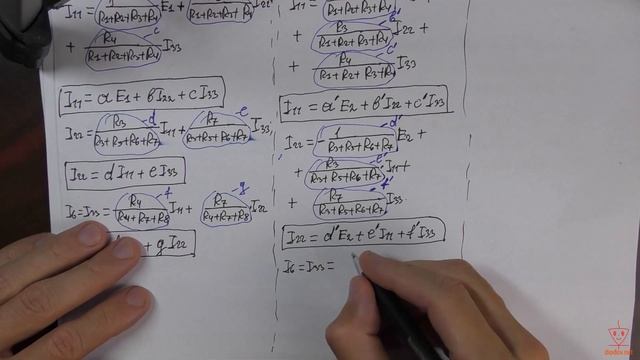 I11 = 1/(R1+R2+R3+R4) E2 + /(R1+R2+R3+R4) I22
+ R4/(R1+R2+R3+R4) I33 c
I11 = aE2 + bI22 + cI33
I22 = R3/(R3+R5+R6+R7) I11 + R7/(R3+R5+R6+R7) I33 d e
I22 = dI11 + eI33
I6 = I33 = R4/(R4+R7+R8) I11 + R7/(R4+R7+R8) I22 f g
+ gI22
I11 = /(R1+R2+R3+R4)
+ R3/(R1+R2+R3+R4) I22 + b'
+ R4/(R1+R2+R3+R4) I33 c'
I11 = a'E2 + b'I22 + c'I33
I22 = - 1/(R3+R5+R6+R7) E2 + d'
+ R3/(R3+R5+R6+R7) I11 + e'
+ R7/(R3+R5+R6+R7) I33 f'
I22 = d'E2 + e'I11 + f'I33
I6 = I33 =